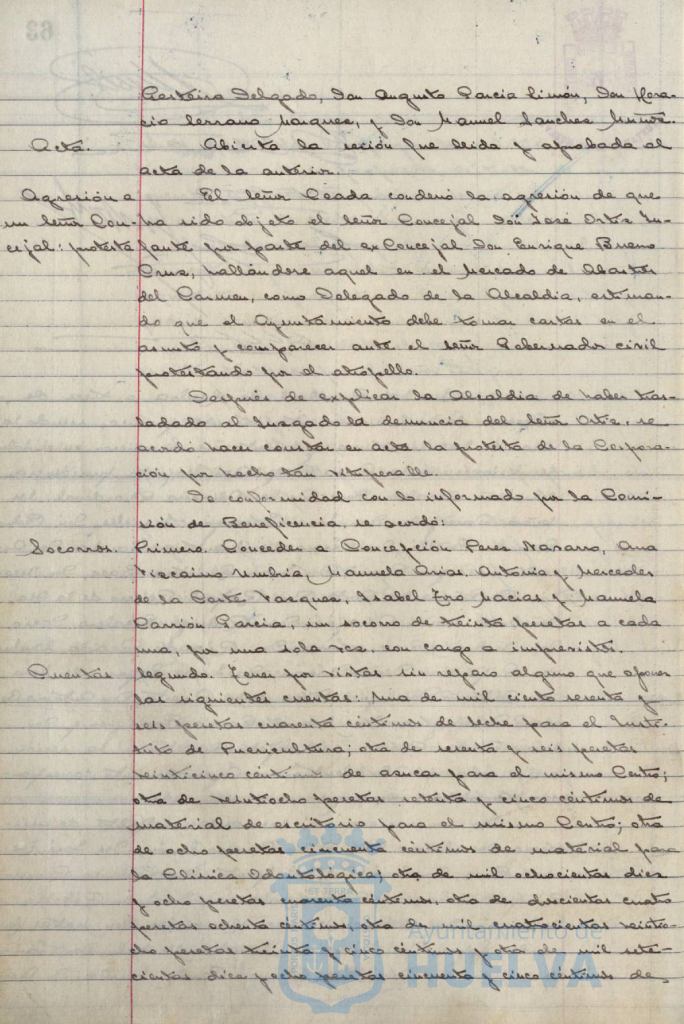 Garteiro Delgado, Don Augusto García Limón, Don Hora-
cio Serrano Marques, y Don Manuel Sanches Muñoz.
Acta. Abierta la sesión fue leida y aprobada al
acta de la anterior.
Agresión a El señor Ceada condenó la agresión de que
un señor Con- ha sido objeto el señor Concejal Don José Ortiz In-
cejal: protesta fante por parte del exConcejal Don Enrique Bueno
Cruz, hallándose aquel en el Mercado de Abastos
del Carmen, como Delegado de la Alcaldia, estiman-
do que el Ayuntamiento debe tomar cartas en el
asunto y comparecer ante el señor Gobernador civil
protestando por el atropello.
Después de explicar la Alcaldia de haber tras-
ladado al Juzgado la denuncia del señor Ortiz, se
acordó hacer constar en acta la protesta de la Corpora-
ción por hecho tan vituperable.
De conformidad con lo informado por la Comi-
sión de Beneficencia, se acordó:
Socorros. Primero. Conceder a Concepción Peres Navarro, Ana
Viscaino Umbria, Manuela Arias, Antonia y Mercedes
de la Corte Vasques, Isabel Toro Macias y Manuela
Carrión Garcia, un socorro de treinta pesetas a cada
una, por una sola vez, con cargo a imprevistos.
Cuentas Segundo. Tener por vistas sin reparo alguno que oponer
las siguientes cuentas: Una de mil ciento sesenta y
seis pesetas cuarenta céntimos de leche para el Insti-
tuto de Puericultura; otra de sesenta y seis pesetas
veinticinco céntimos de asucar para el mismo Centro;
otra de veintiocho pesetas setenta y cinco céntimos de
material de escritorio para el mismo Centro; otra
de ocho pesetas cincuenta céntimos de material para
la Clínica Odontológica; otra de mil ochocientas dies
y ocho pesetas cuarenta céntimos, otra de doscientas cuatro
pesetas ochenta céntimos, otra de mil cuatrocientas veintio-
cho pesetas treinta y cinco céntimos y otra de mil sete-
cientas dies y ocho pesetas cincuenta y cinco céntimos de
Ayuntamiento de
HUELVA